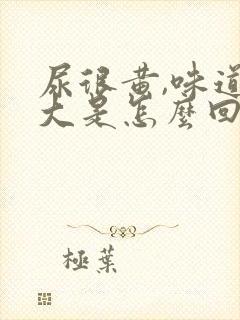 尿很黄,味道
大是怎麼回
極葉